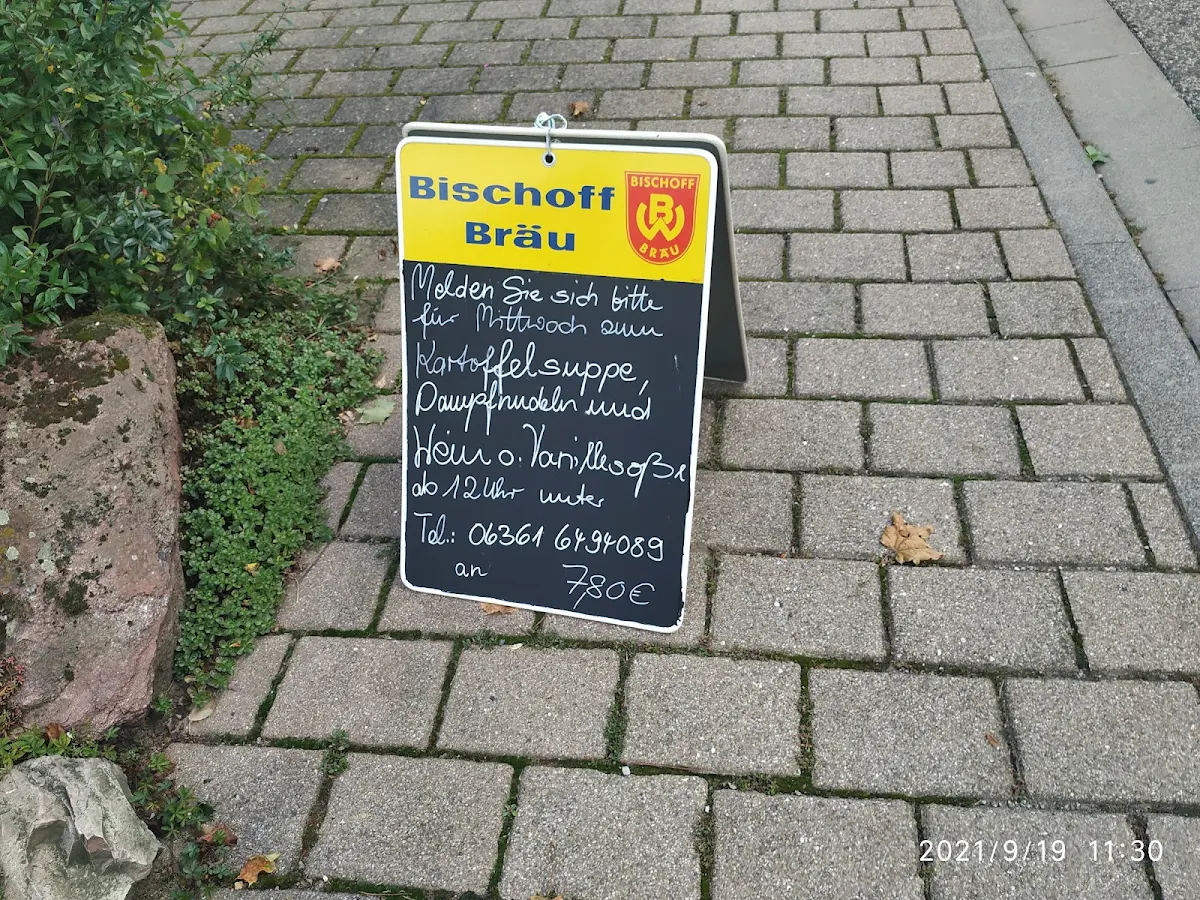 Bischoff
Bräu
BISCHOFF
BW
BRÄU
Melden Sie sich bitte
für Mittwoch zum
Kartoffelsuppe,
Dampfnudeln und
Wein o. Vanillesoße
ab 12 Uhr unter
Tel.: 06361 6494089
an 7,80€
2021/9/19 11:30